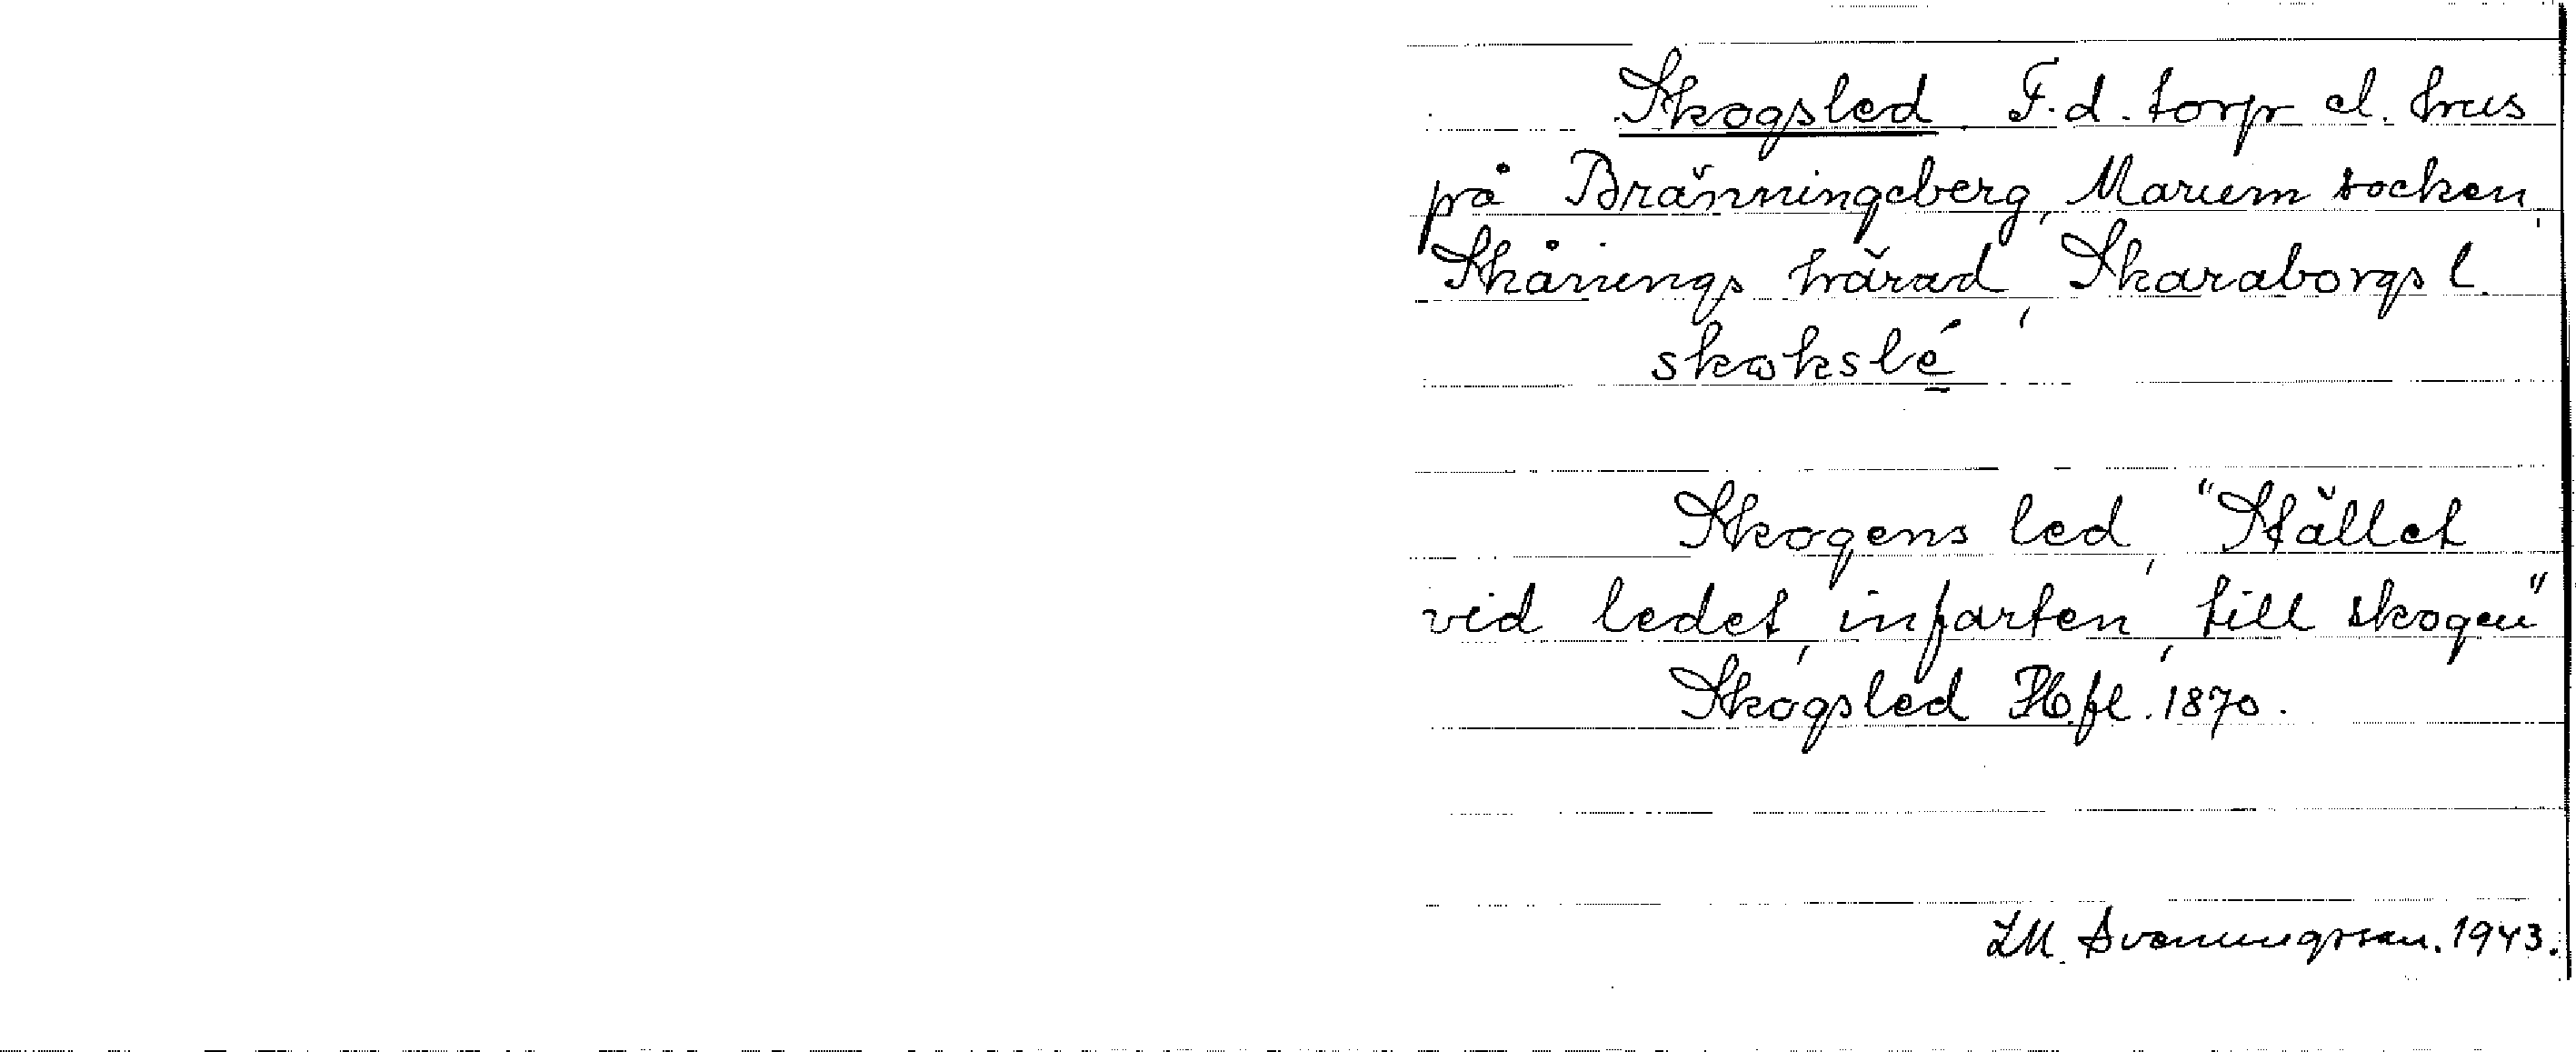 Skogsled F.d. torp el. hus
på Bränningeberg, Marum socken,
Skånings härad, Skaraborgs l.
skoksle̱´
Skogens led, "Stället
vid ledet, infarten, till skogen"
Skogsled Hfl. 1870.
LM. Svenungsson. 1943.